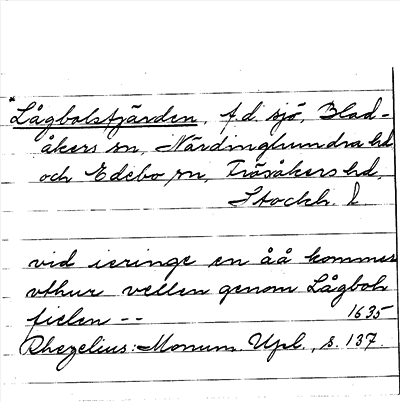 *Lågbolsfjärden, f.d. sjö, Blad-
åkers sn, Närdinghundra hd
och Edebo sn, Frösåkers hd,
Stockh. l.
vid ieringe en åå kommer
vthur vellen genom Lågboh
fielen -- 1635
Rhezelius: Monum. Upl., s. 137.